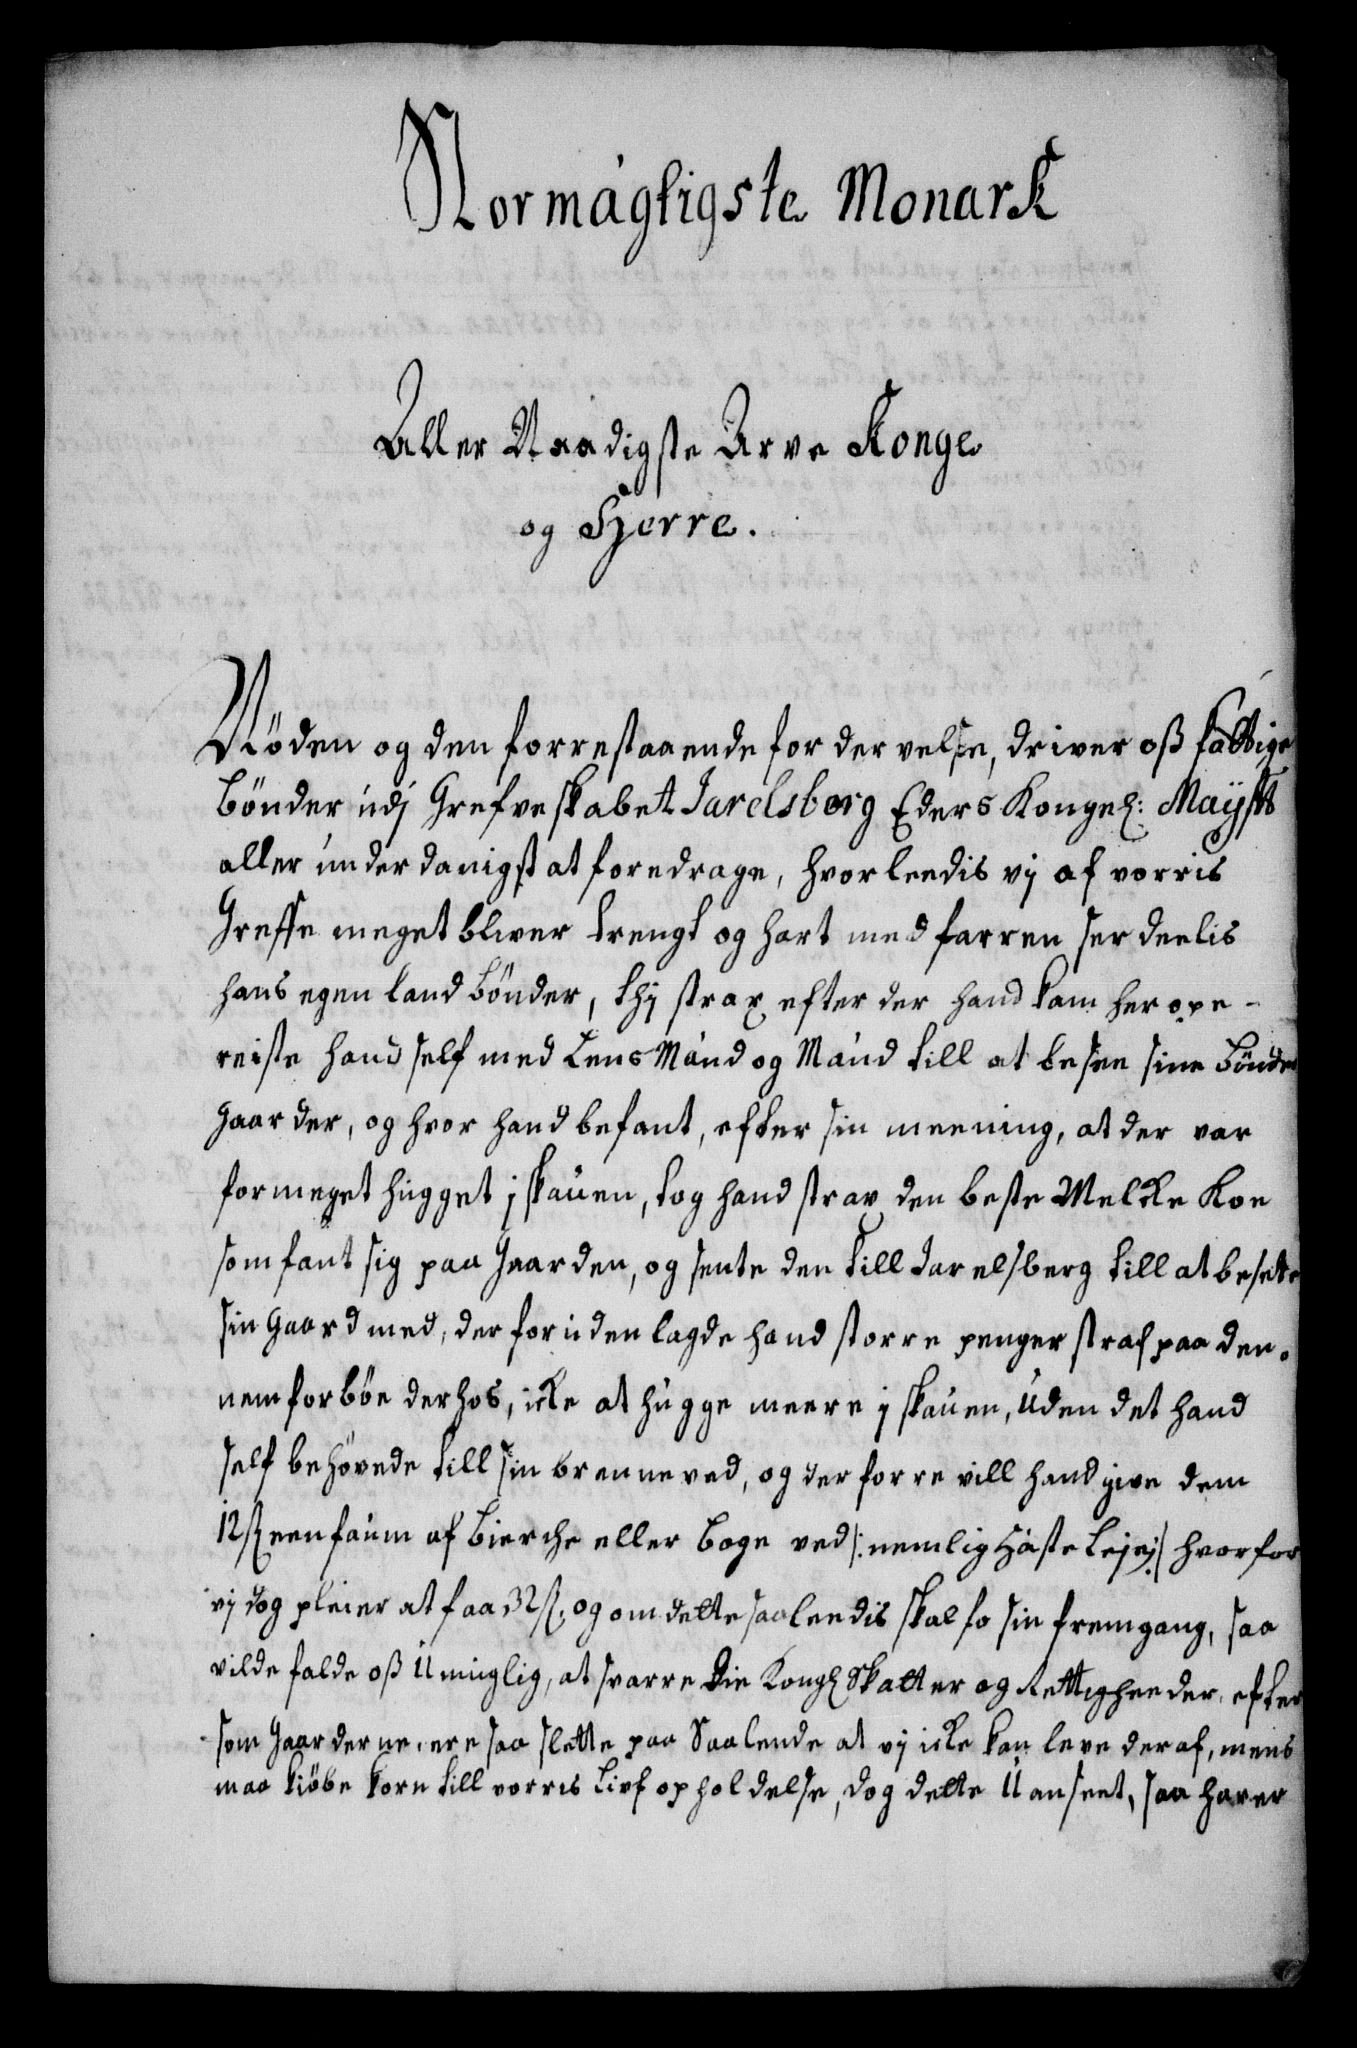 Stormägtigste Monark
Aller Naadigste Arve Konge
og Herre.
Nöden og den forrestaaende fordervelse, driver oß fattige
bönder udj Grefveskabet Jarelsberg Eders Kongel: Mayßts
aller underdanigst at foredrage, hvorleedis vj af vorris
Greffe meget bliver trengt og hart medfarren serdeelis
hans egen land bönder, thj strax efter der hand kom her ope-
reiste hand self med LensMand og Mand till at besee sine bönder
gaarder, og hvor hand befant, efter sin meening, at der var
formeget hugget j skauen, tog hand strax den beste Melcke Koe
som fant sig paa Gaarden, og sente den till Jarelsberg till at besette
sin Gaard med, der foruden lagde hand storre penger straf paa den.
nem forböe derhos, icke at hugge meere j skauen, uden det hand
self behövede till sin brenneved, og derforre vill hand give dem
12ß een faum af bierche eller böge ved /: nemlig Häste Leje :/ hvorfor
vj dog pleier at faa 32ß, og om dette saaleedis skal fo sin fremgang, saa
vilde falde oß Umuglig, at svarre Die Kongl Skatter og Rettigheeder, efter
som Gaarderne, ere saa slette paa Saalende at vj icke kan leve deraf, mens
maa kiöbe korn till vorris Livf opholdelse, dog dette Uanseet, saa harer